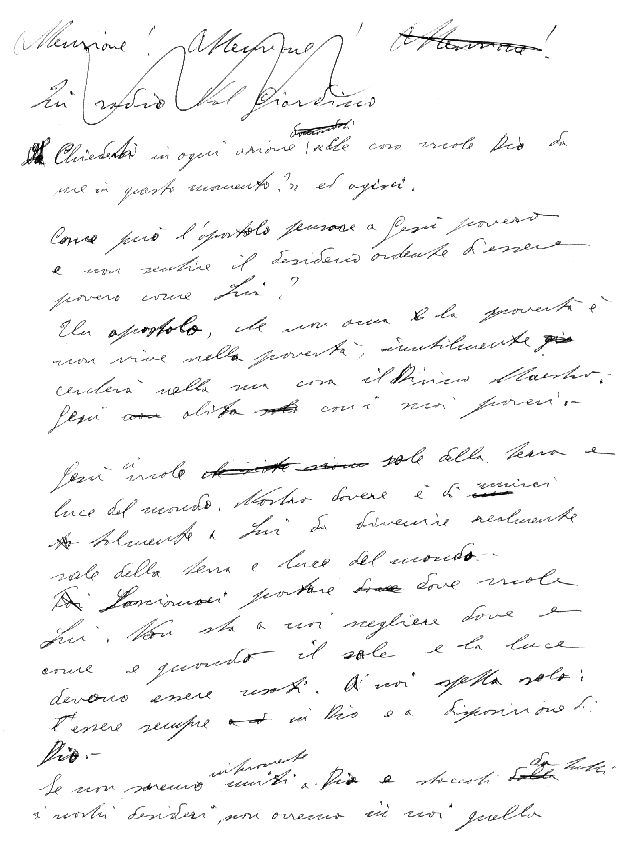 Attenzione! Attenzione! Attenzione!
In radio dal Giardino
Chiederti in ogni azione: "che cosa vuole Dio da
me in questo momento?" ed agisci.
Come può l'apostolo pensare a Gesù povero
e non sentire il desiderio ardente d'essere
povero come Lui?
Un apostolo, che non ama la povertà e
non vive nella povertà, inutilmente
cercherà nella sua casa il Divino Maestro.
Gesù abita con i suoi poveri.-
Gesù ci vuole sale della terra e
luce del mondo. Nostro dovere è di unirci
talmente a Lui da divenire realmente
sale della terra e luce del mondo.-
Lasciamoci portare dove vuole
Lui. Non sta a noi scegliere dove e
come e quando il sale e la luce
devono essere usati. A noi spetta solo:
l'essere sempre in Dio e a disposizione di
Dio.-
Se non saremo intimamente uniti a Dio e staccati da tutti
i nostri desideri, non avremo in noi quella